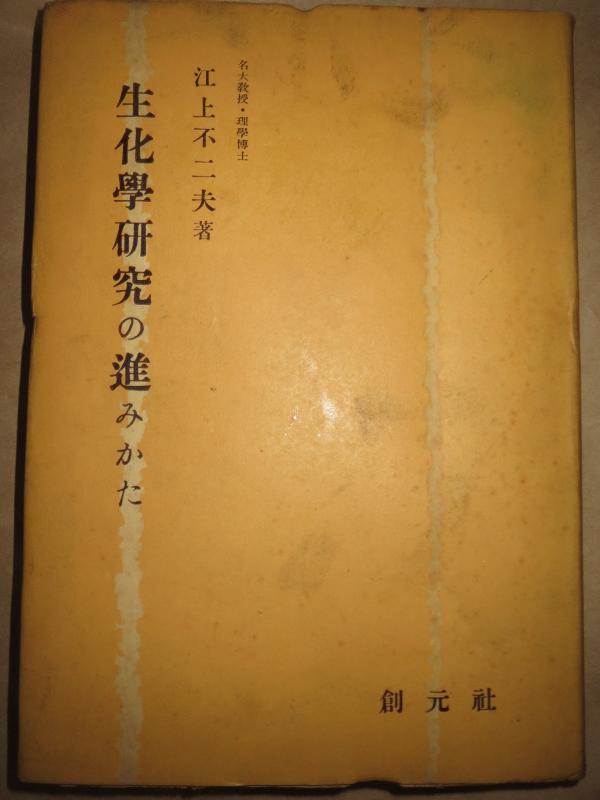 名大教授・理學博士
江上不二夫著
生化學硏究の進みかた
創元社